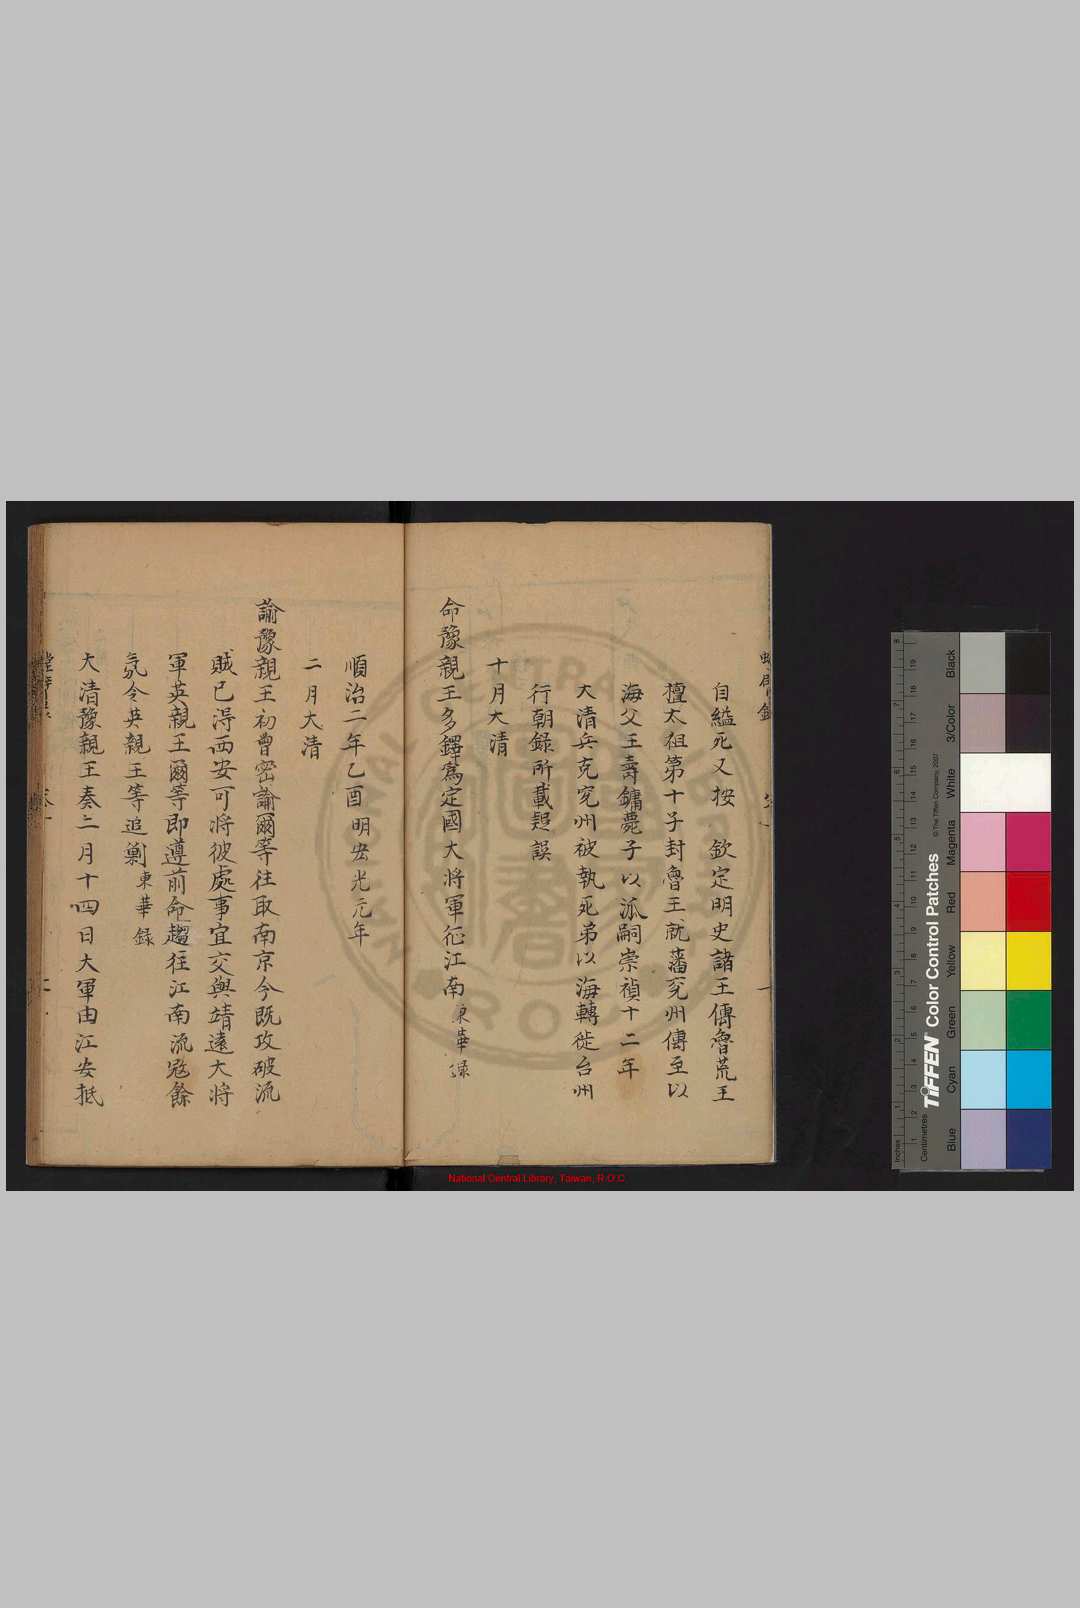 自縊死又按　欽定明史諸王傳魯荒王
檀太祖第十子封魯王就藩兗州傳至以
海父王壽鏞薨子以泒嗣崇禎十二年
大清兵克兗州被執死弟以海轉徙台州
行朝錄所載趕誤
十月大清
命豫親王多鐸為定國大將軍征江南東華録
順治二年乙酉明宏光元年
二月大清
諭豫親王初曾密諭爾等往取南京今既攻破流
賊已淂西安可將彼處事宜交與靖遠大將
軍英親王爾等即遵前命趨往江南流寇餘
氛令英親王等追剿東華錄
大清豫親王奏二月十四日大軍由江安抵
National Central Library, Taiwan, R.O.C.
TIFFEN Color Control Patches
© The Tiffen Company, 2007
Inches
Centimetres
Blue
Cyan
Green
Yellow
Red
Magenta
White
3/Color
Black